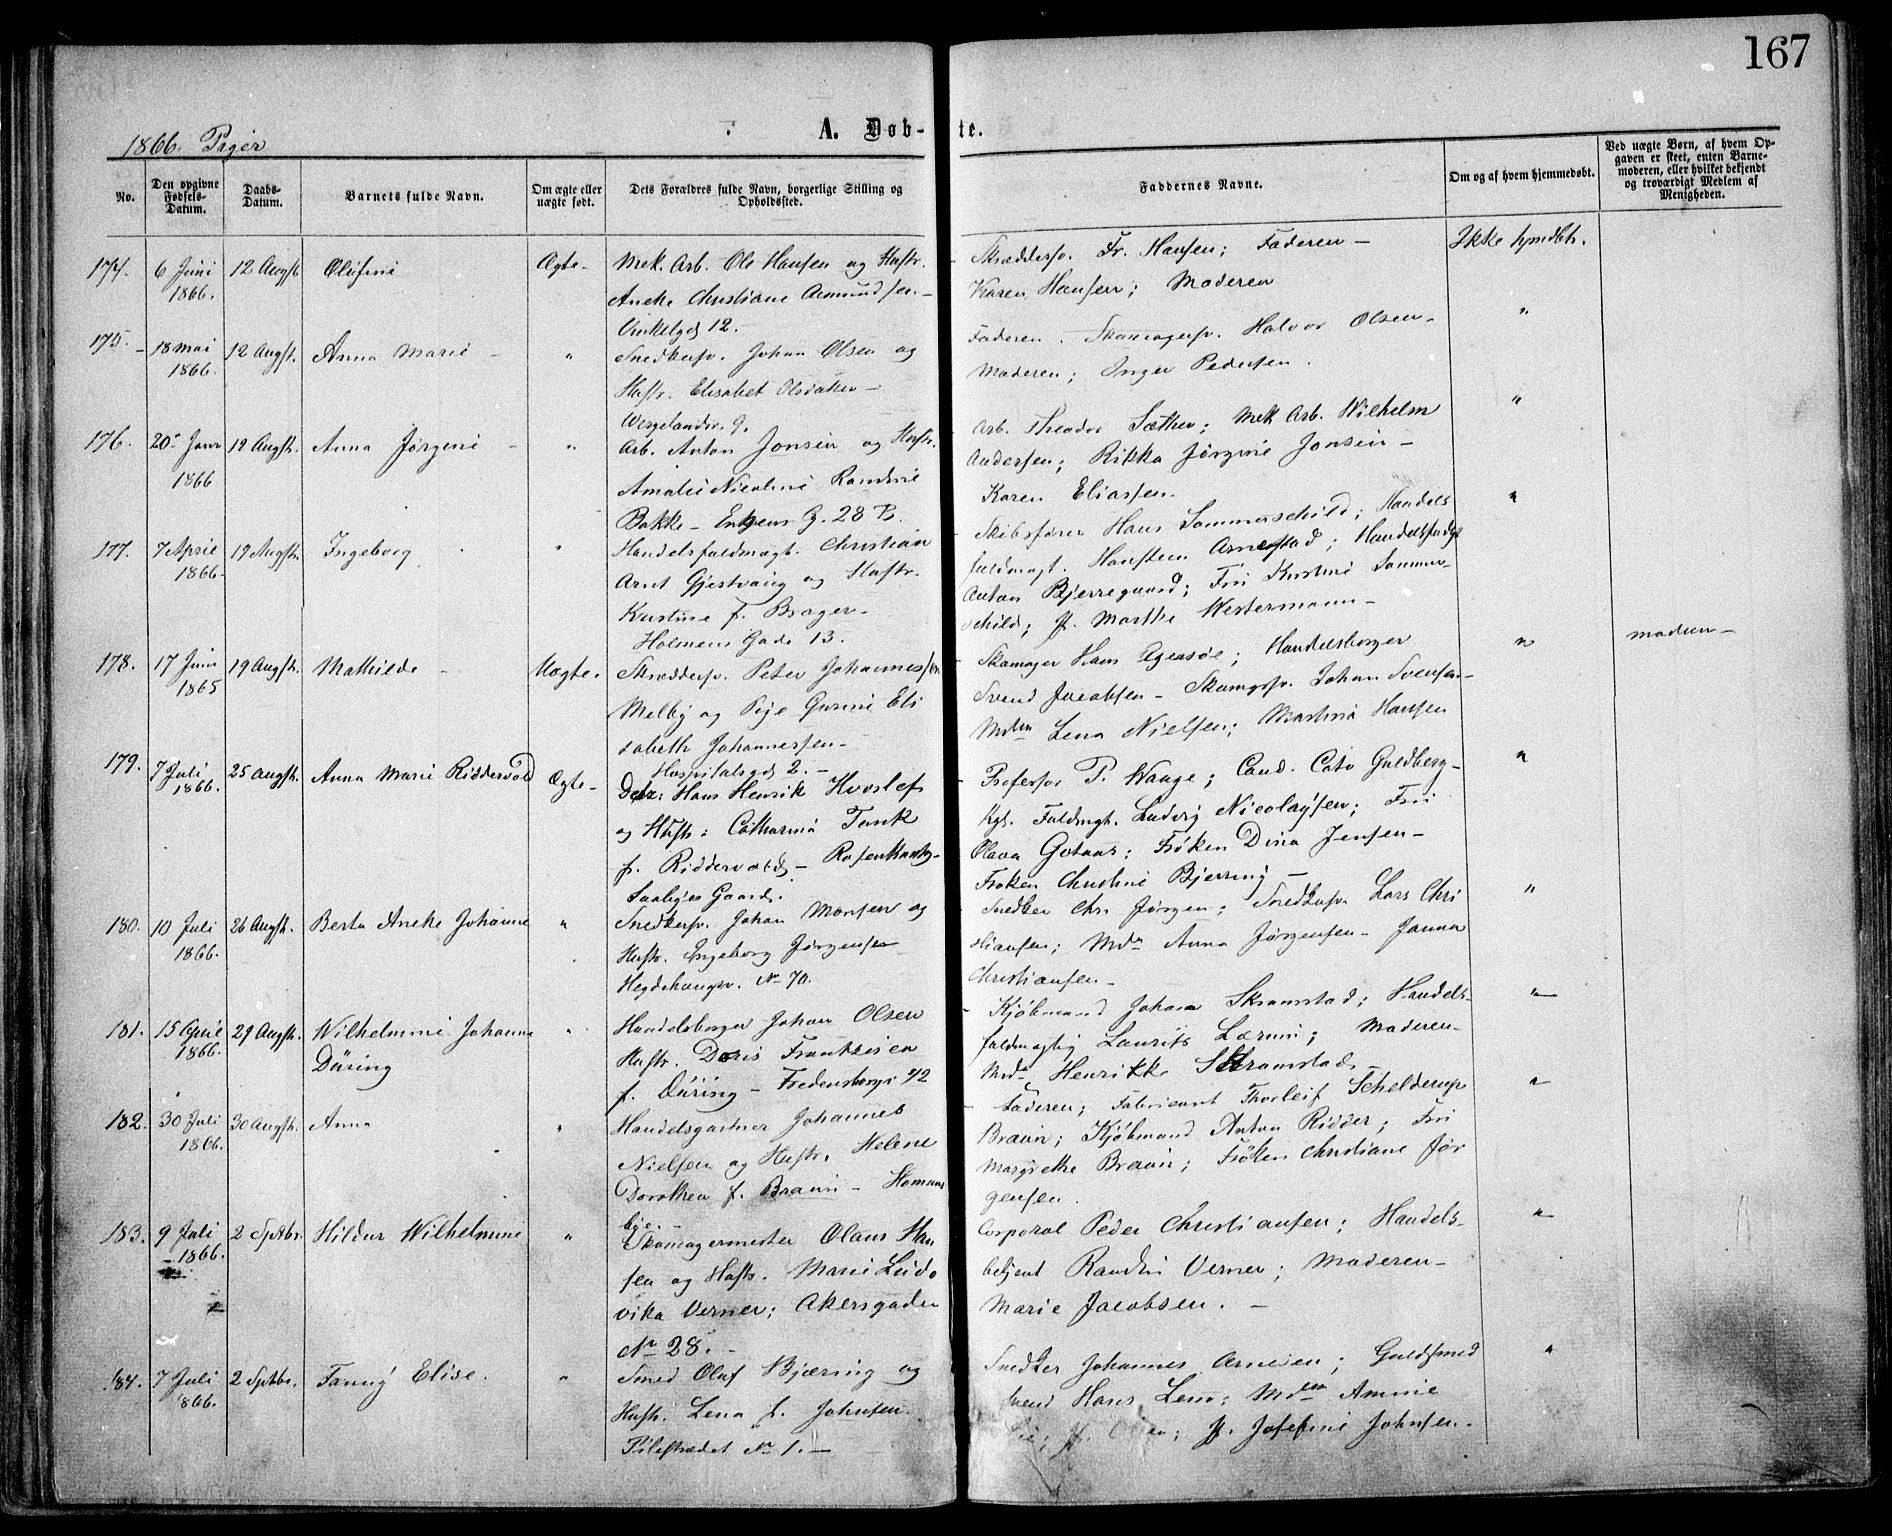 167
1866. Piger
A. Døb-te.
No.
Den opgivne Fødsels-Datum.
Daabs-Datum.
Barnets fulde Navn.
Om ægte eller uægte født.
Dets Forældres fulde Navn, borgerlige Stilling og Opholdssted.
Faddernes Navne.
Om og af hvem hjemmedøbt.
Ved uægte Børn, af hvem Opgaven er skeet, enten Barnemoderen, eller hvilket bekjendt og troværdigt Medlem af Menigheden.
174. 6 Juni 1866. 12 Augst. Olefine Ægte-
Mek. Arb. Ole Hansen og Hustr.
Aneke Christiane Asmundsen-
Vinkelgd 12.
Skræddersv. Fr. Hansen; Faderen-
Karen Hansen; Moderen
Ikke hjmdbt.
175. 18 Mai 1866. 12 Augst. Anna Marie "
Snedkersv. Johan Olsen og
Hustr. Elisabet Olsdatter-
Wergelandsv. 9.
Faderen. Skomagersv. Halvor Olsen-
Moderen; Inger Pedersen.
"
176. 20 Janr 1866 12 Augst. Anna Jørgine "
Arb. Anton Jonsen og Hustr.
Amalie Nicoline Randine
Bakke- G. 28 B.
Arb. Theodor Sæther; Mek Arb. Wilhelm
Andersen; Rikka Jørgine Jonsen-
Karen Eliassen.
"
177. 7 April 1866. 19 Augst. Ingeborg "
Handelsfuldmægt. Christian
Arnt Gjestvang og Hustr.
Kristine f. Brager-
Holmens Gade 13.
Skibsfører Hans Sommerschild; Handels
fuldmægt. Arnestad;
Anton Bjerregaard; Fru Kristine Sommer-
schild; J. Marthe Westermann-
"
178. 17 Juni 1865 19 Augst. Mathilde- Uægte.
Skræddersv. Peter Johannessen
Melby og Pige Gurine Eli
sabeth Johannessen-
Hospitalsgd 2.-
Skomager Hans Agersøe; Handelsborger
Svend Jacobsen- Skomgsv. Johan Svensen-
Mdm Lena Nielsen; Martina Hansen
"
moderen-
179. 7 Juli 1866. 25 Augst. Anna Marie Riddervold Ægte-
Hans Henrik Hvoslef
og Hustr: Catharina Tank
f. Riddervold- Rosenkrantz-
Gaard.
Professor P. Waage; Cand. Cato Guldberg-
Kgl. Fuldmgt. Ludvig Nicolaysen; Fru
Olava Frøken Dina Jensen-
Frøken Christine Bjerring-
"
180. 10 Juli 1866. 26 Augst. Berta Aneke Johanne "
Snedkersv. Johan Monsen og
Hustr. Ingeborg Jørgensen
Hegdehaugsv. No 70.
Snedker Chr Jørgen; Snedkersv. Lars Chri
stiansen; Mdm Anna Jørgensen- Janna
Christiansen-
"
181. 15 April 1866. 29 Augst. Wilhelmine Johanne Düring "
Handelsborger Johan Olsen
Hustr. Doris Frantzisca
f. Düring- Fredensborgv 42
Kjøbmand Johan Skramstad; Handels-
fuldmægtig Laurits Lærum; Moderen-
Mdm Henrikke Skramstad
"
182. 30 Juli 1866. 30 Augst. Anna "
Handelsgartner Johannes
Nielsen og Hustr. Helene
Dorothea f. Braun- Homans
bye.-
Faderen; Fabricant Thorleif Schelderup
Braun; Kjøbmand Anton Ridder; Fru
Margrethe Braun; Frøken Christiane Jør
gensen.
"
183. 9 Juli 1866. 2 Sptbr. Hildur Wilhelmine "
Skomagermester Olaus Han
sen og Hustr. Marie Ludo
vika Verner; Akersgaden
No 28.-
Corporal Peder Christiansen; Handels-
betjent Randin Verner; Moderen-
Marie Jacobsen.-
"
184. 7 Juli 1866. 2 Sptbr. Fanny Elise. "
Smed Oluf Bjæring og
Hustr. Lena f. Johnsen.
Pilestrædet No 1.-
Snedker Johannes Arnesen; Guldsmed
svend Hans Lem; Mdm Amnie
J. Josefine Johnsen.
"